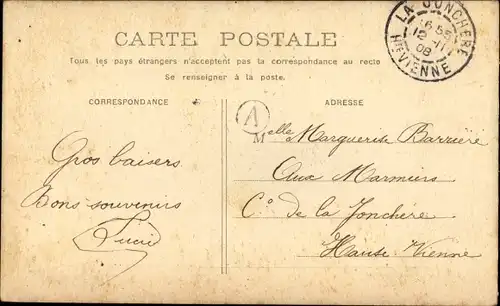 CARTE POSTALE
Tous les pays étrangers n'acceptent pas la correspondance au recto
Se renseigner à la poste.
LA JONCHERE
16 55
12 - 11
08
Hte VIENNE
CORRESPONDANCE
ADRESSE
A
Melle Marguerite Barrière
Aux Marmiers
Cne de la Jonchère
Haute Vienne
Gros baisers
Bons souvenirs
Lucie